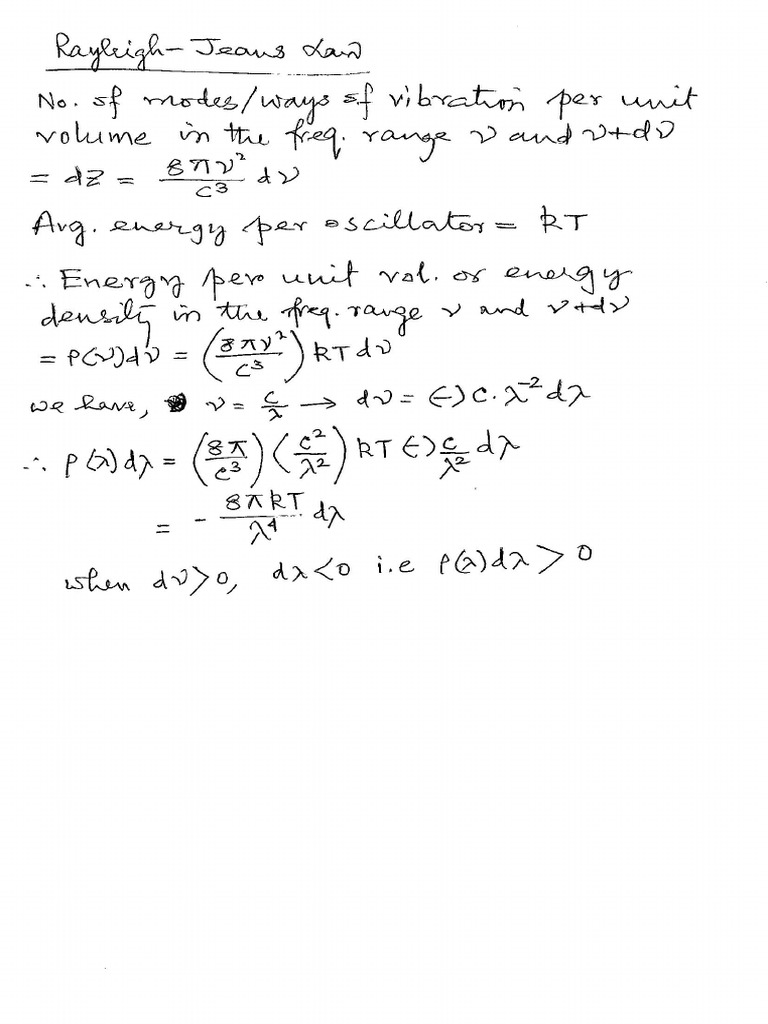 Rayleigh-Jeans Law
No. of modes/ways of vibration per unit
volume in the freq. range ν and ν+dν
= dZ = 8πν²/c³ dν
Avg. energy per oscillator = kT
∴ Energy per unit vol. or energy
density in the freq. range ν and ν+dν
= ρ(ν)dν = (8πν²/c³) kT dν
we have, ν = c/λ → dν = (-) c.λ⁻² dλ
∴ ρ(λ)dλ = (8π/c³) (c²/λ²) kT (-) c/λ² dλ
= - 8πkT/λ⁴ dλ
when dν>0, dλ<0 i.e ρ(λ)dλ > 0